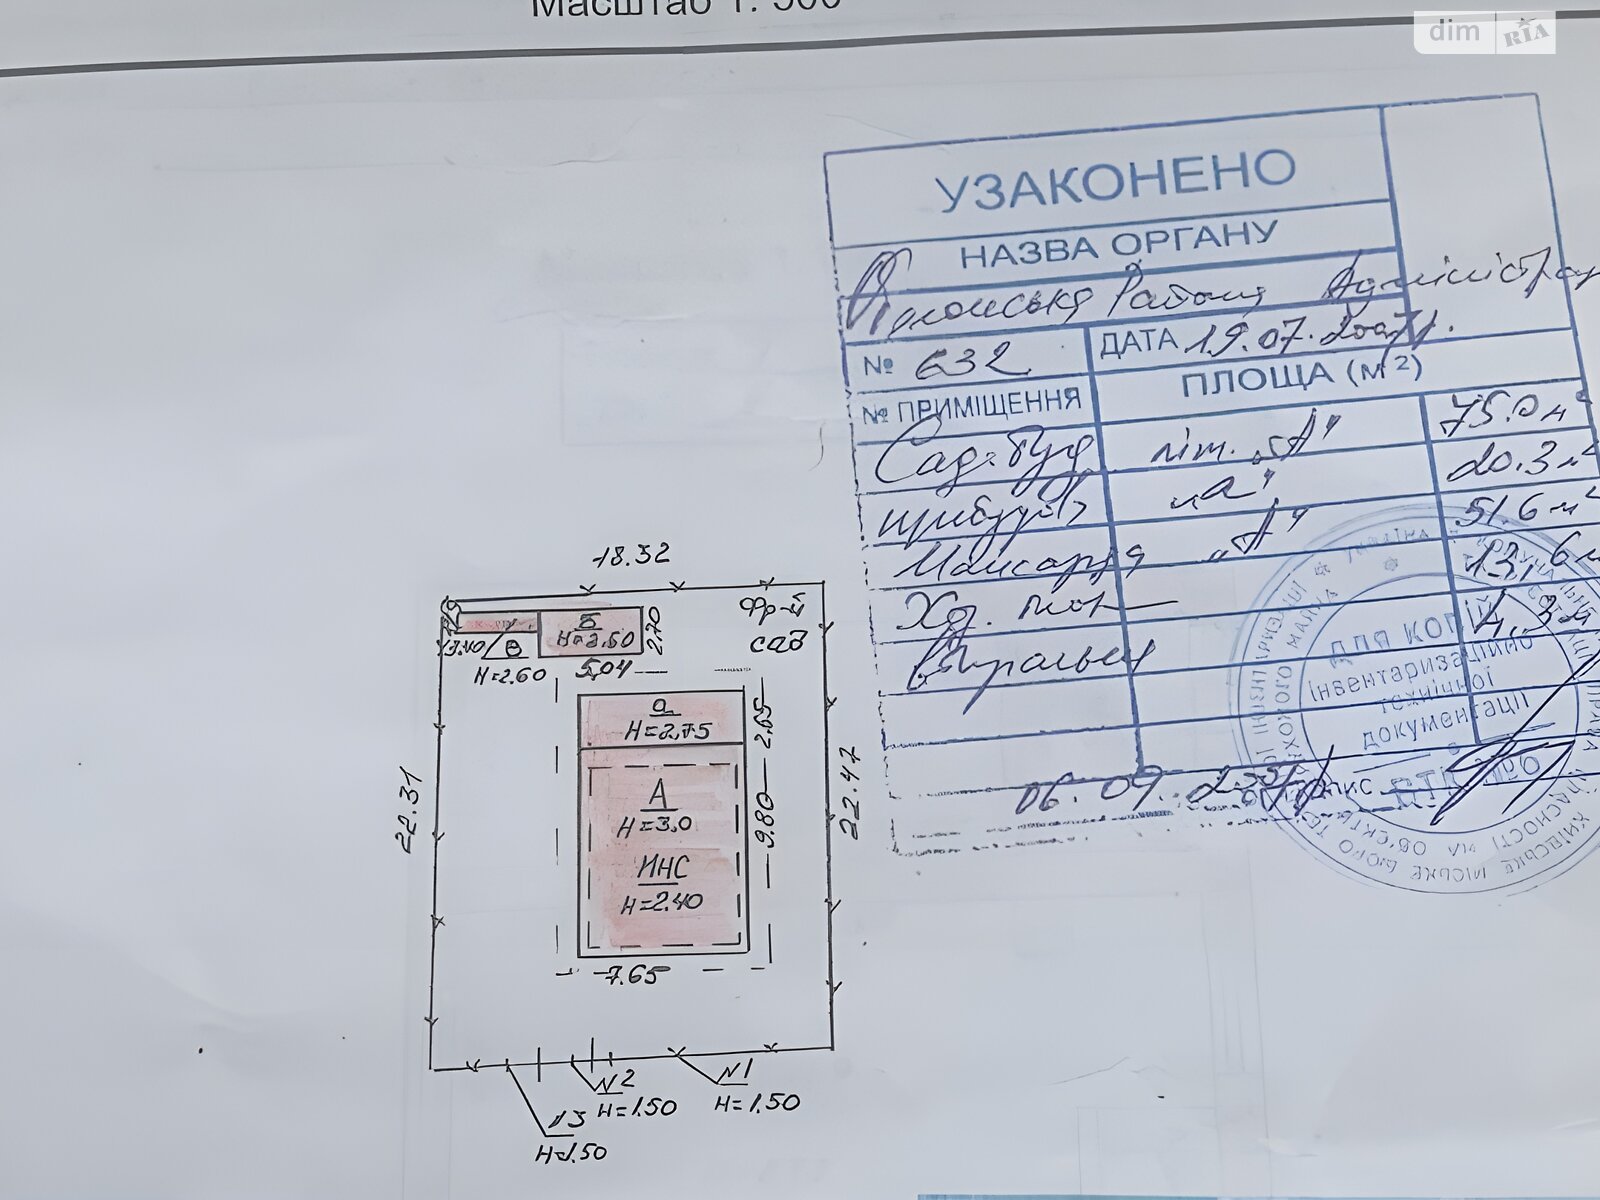 Масштаб 1: 500
dim RIA
УЗАКОНЕНО
НАЗВА ОРГАНУ
Районна Адміністрац
№ 632 ДАТА 19.07.2007р.
№ ПРИМІЩЕННЯ ПЛОЩА (м²)
Сад. буд літ. "А" 75.0 м²
прибудов "а" 20.3 м²
Мансарда "А" 51.6 м²
Хд. 13,6 м
Вбиральня 4,3 м
06.09.
ДЛЯ КОПІЙ
інвентаризаційно
технічної
документації
УКРАЇНА
18.32
Фр-й
сад
Б
Н=2.60
2.20
3.40
В
Н=2.60
5,04
а
Н=2,75
2.65
А
Н=3,0
МНС
Н=2.40
9.80
7.65
22.31
22.47
№1
Н=1.50
№2
Н=1.50
№3
Н=1.50